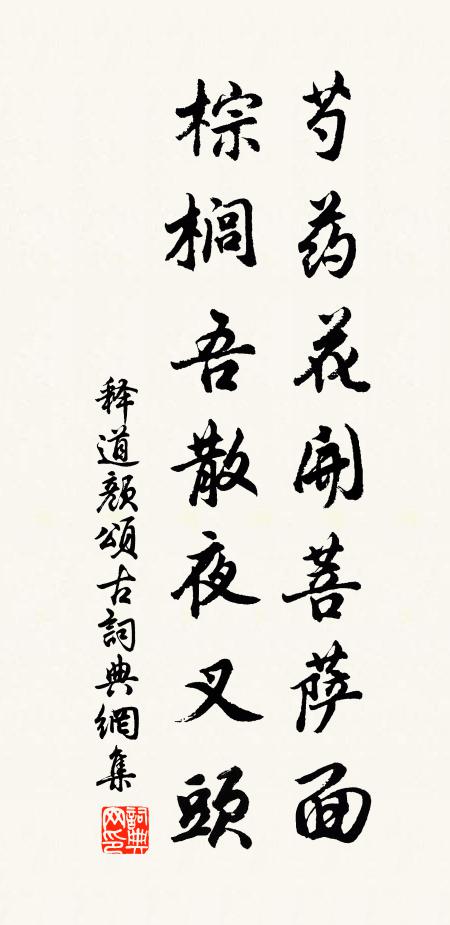 芍药花開菩萨面
棕榈吾散夜叉頭
释道颜頌古詞典網集
詞典网印